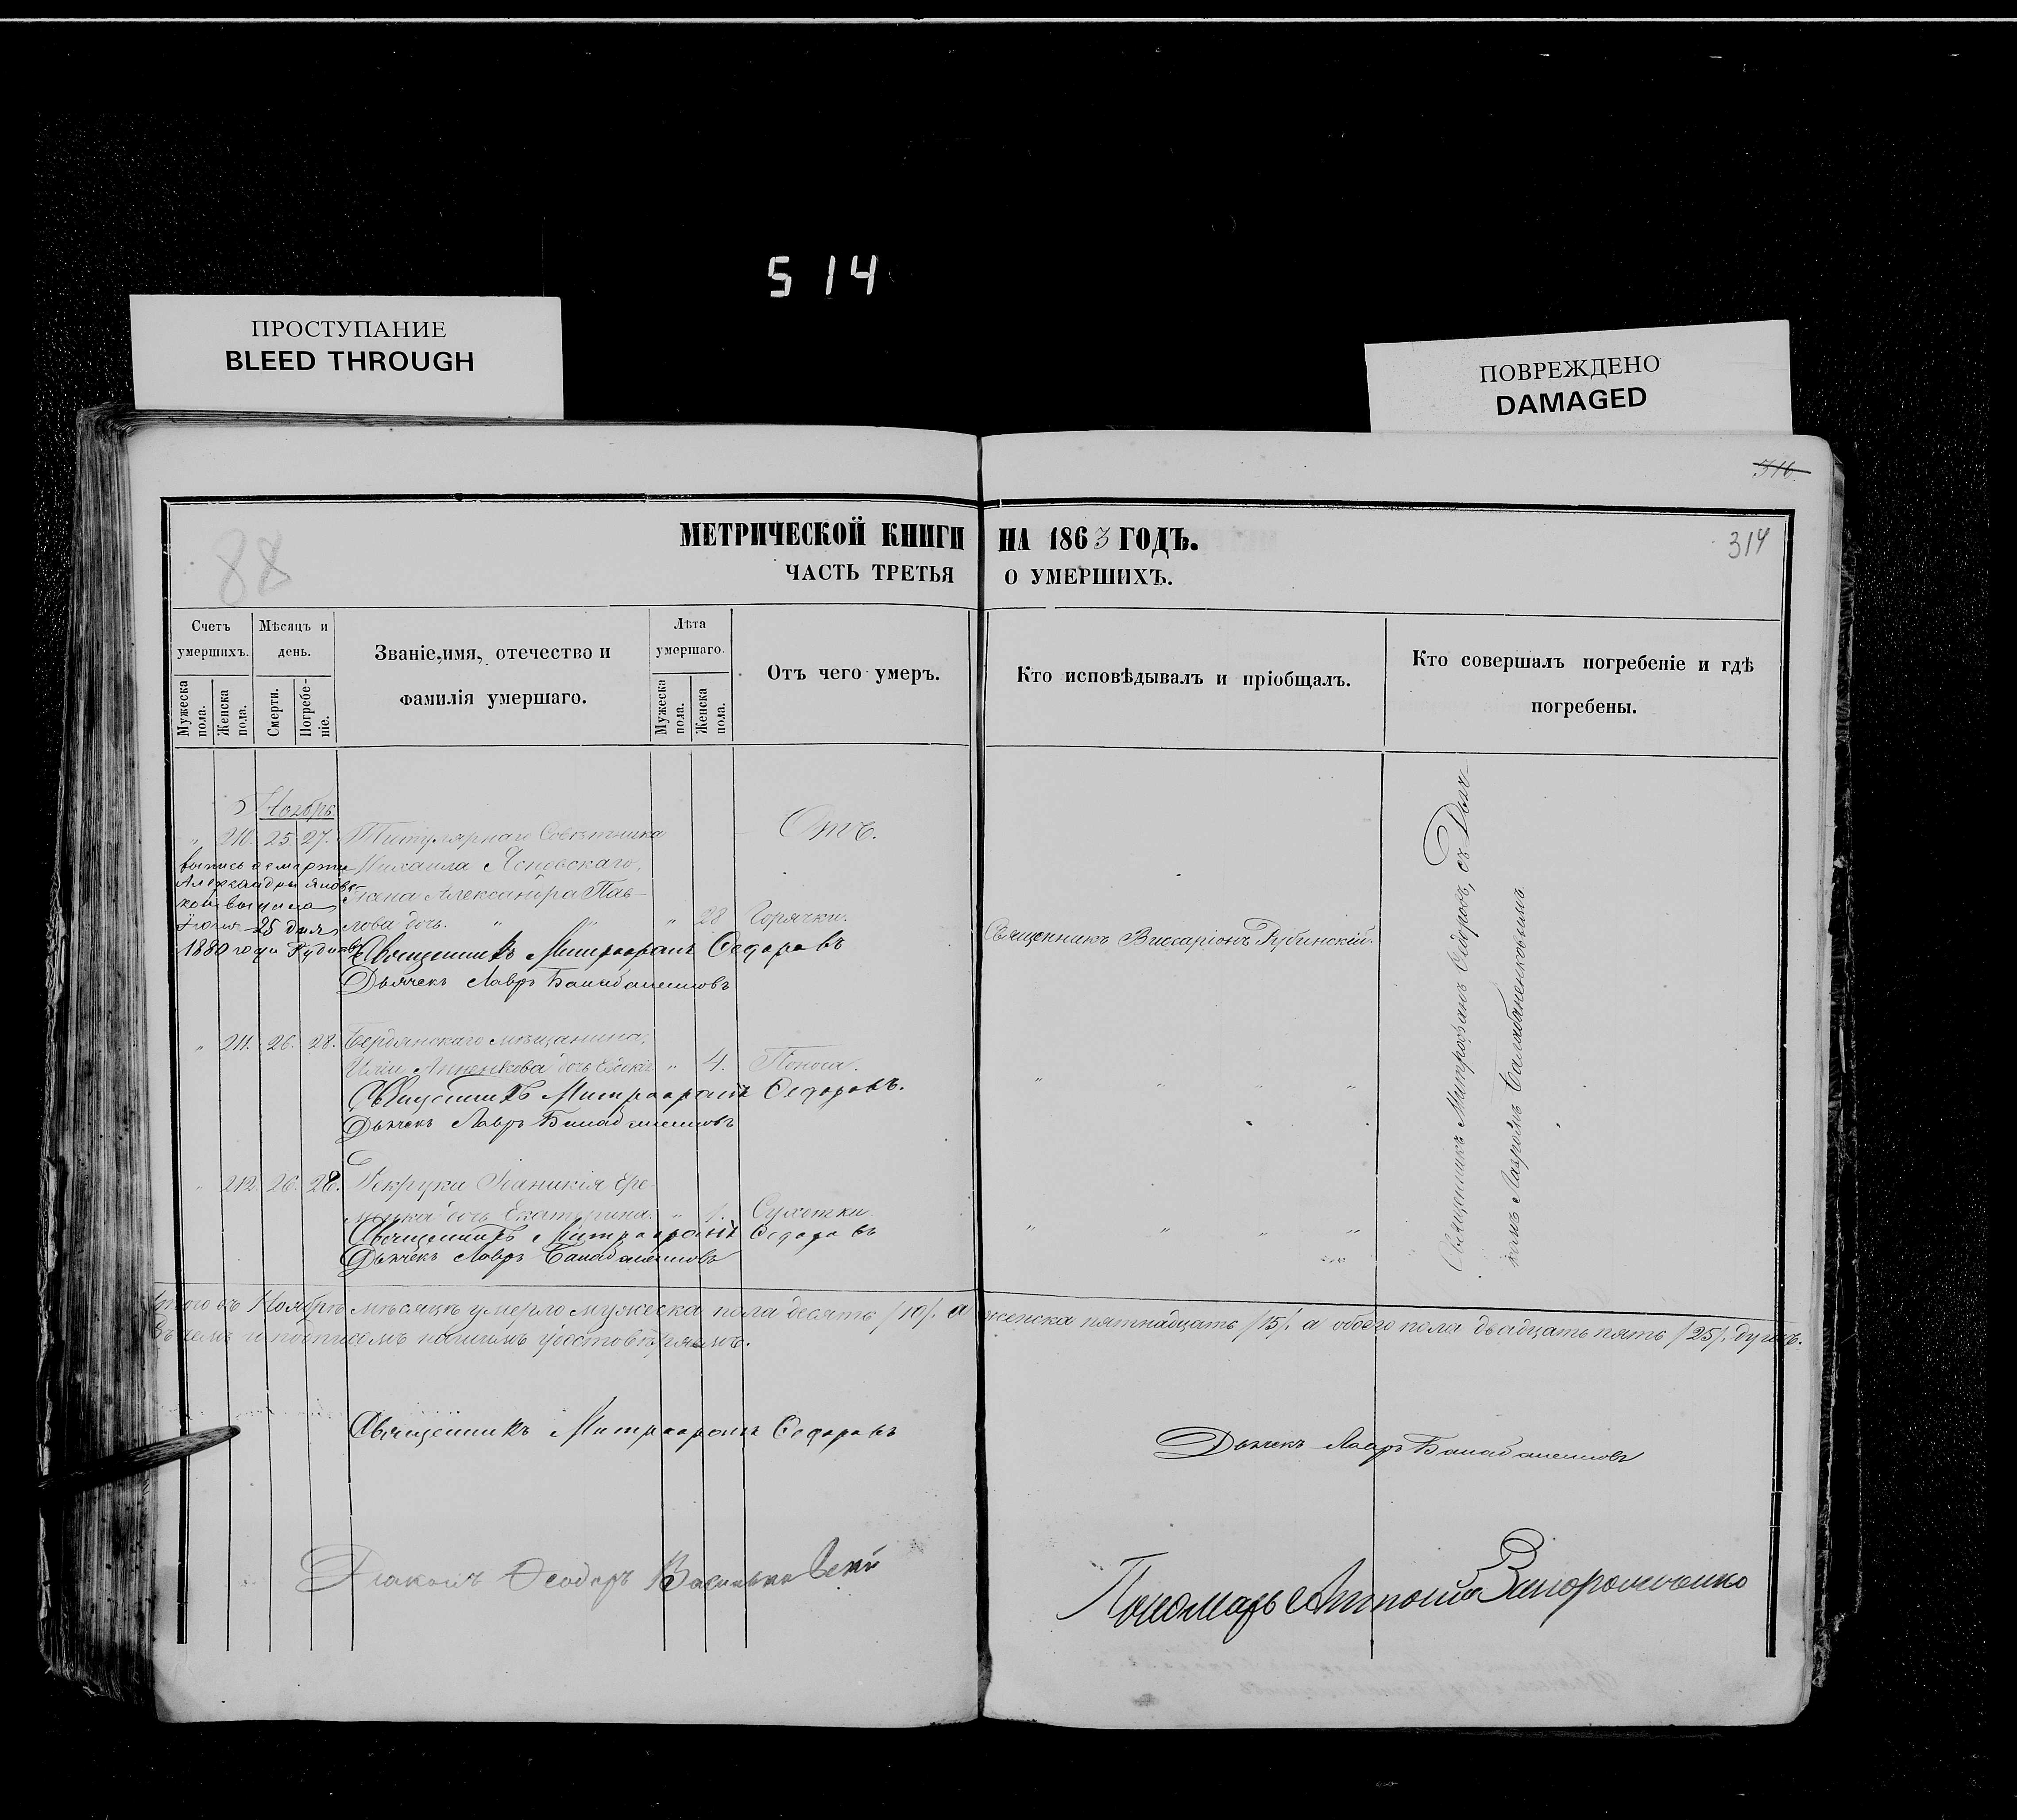 514
ПРОСТУПАНИЕ
BLEED THROUGH
ПОВРЕЖДЕНО
DAMAGED
316
88
314
МЕТРИЧЕСКОЙ КНИГИ НА 1863 ГОДЪ.
ЧАСТЬ ТРЕТЬЯ О УМЕРШИХЪ.
Счетъ умершихъ.
Мѣсяцъ и день.
Званіе, имя, отечество и фамилія умершаго.
Лѣта умершаго.
Отъ чего умеръ.
Кто исповѣдывалъ и пріобщалъ.
Кто совершалъ погребеніе и гдѣ погребены.
Мужеска пола.
Женска пола.
Смерти.
Погребеніе.
Мужеска пола.
Женска пола.
Ноябрь
" 210. 25. 27. Титулярнаго Совѣтника Отъ.
Михаила Яновскаго,
жена Александра Пав-
лова дочь. " " " 28 Горячки.
Священникъ Виссаріонъ Рубинскій.
выпись о смерти
Александры Яновс
кой выдана
25 дня
1880 года
Священникъ Митрофанъ Ѳедоровъ
Дьячекъ Лавръ Балабаненковъ
" 211. 26. 28. Бердянскаго мѣщанина,
Анненкова дочь " 4. Поноса.
" " " "
Священникъ Митрофанъ Ѳедоровъ.
Дьячекъ Лавръ Балабаненковъ
" 212. 26. 28. Рекрута Іоаникія Ере-
менка дочь Екатерина. " 1. Сухотки.
" " " "
Священникъ Митрофанъ Ѳедоровъ
Дьячекъ Лавръ Балабаненковъ
Священникъ Митрофанъ Ѳедоровъ, съ Дьяч-
комъ Лавромъ Балабаненковымъ.
Итого въ Ноябрѣ мѣсяцѣ умерло мужеска пола десять /10/. а женска пятнадцать /15/. а обоего пола двадцать пять /25/. душъ.
Въ чемъ и подписомъ нашимъ удостовѣряемъ.
Священникъ Митрофанъ Ѳедоровъ
Дьячекъ Лавръ Балабаненковъ
Діаконъ Ѳеодоръ Васильковскій
Пономарь Антоній Запорожченко